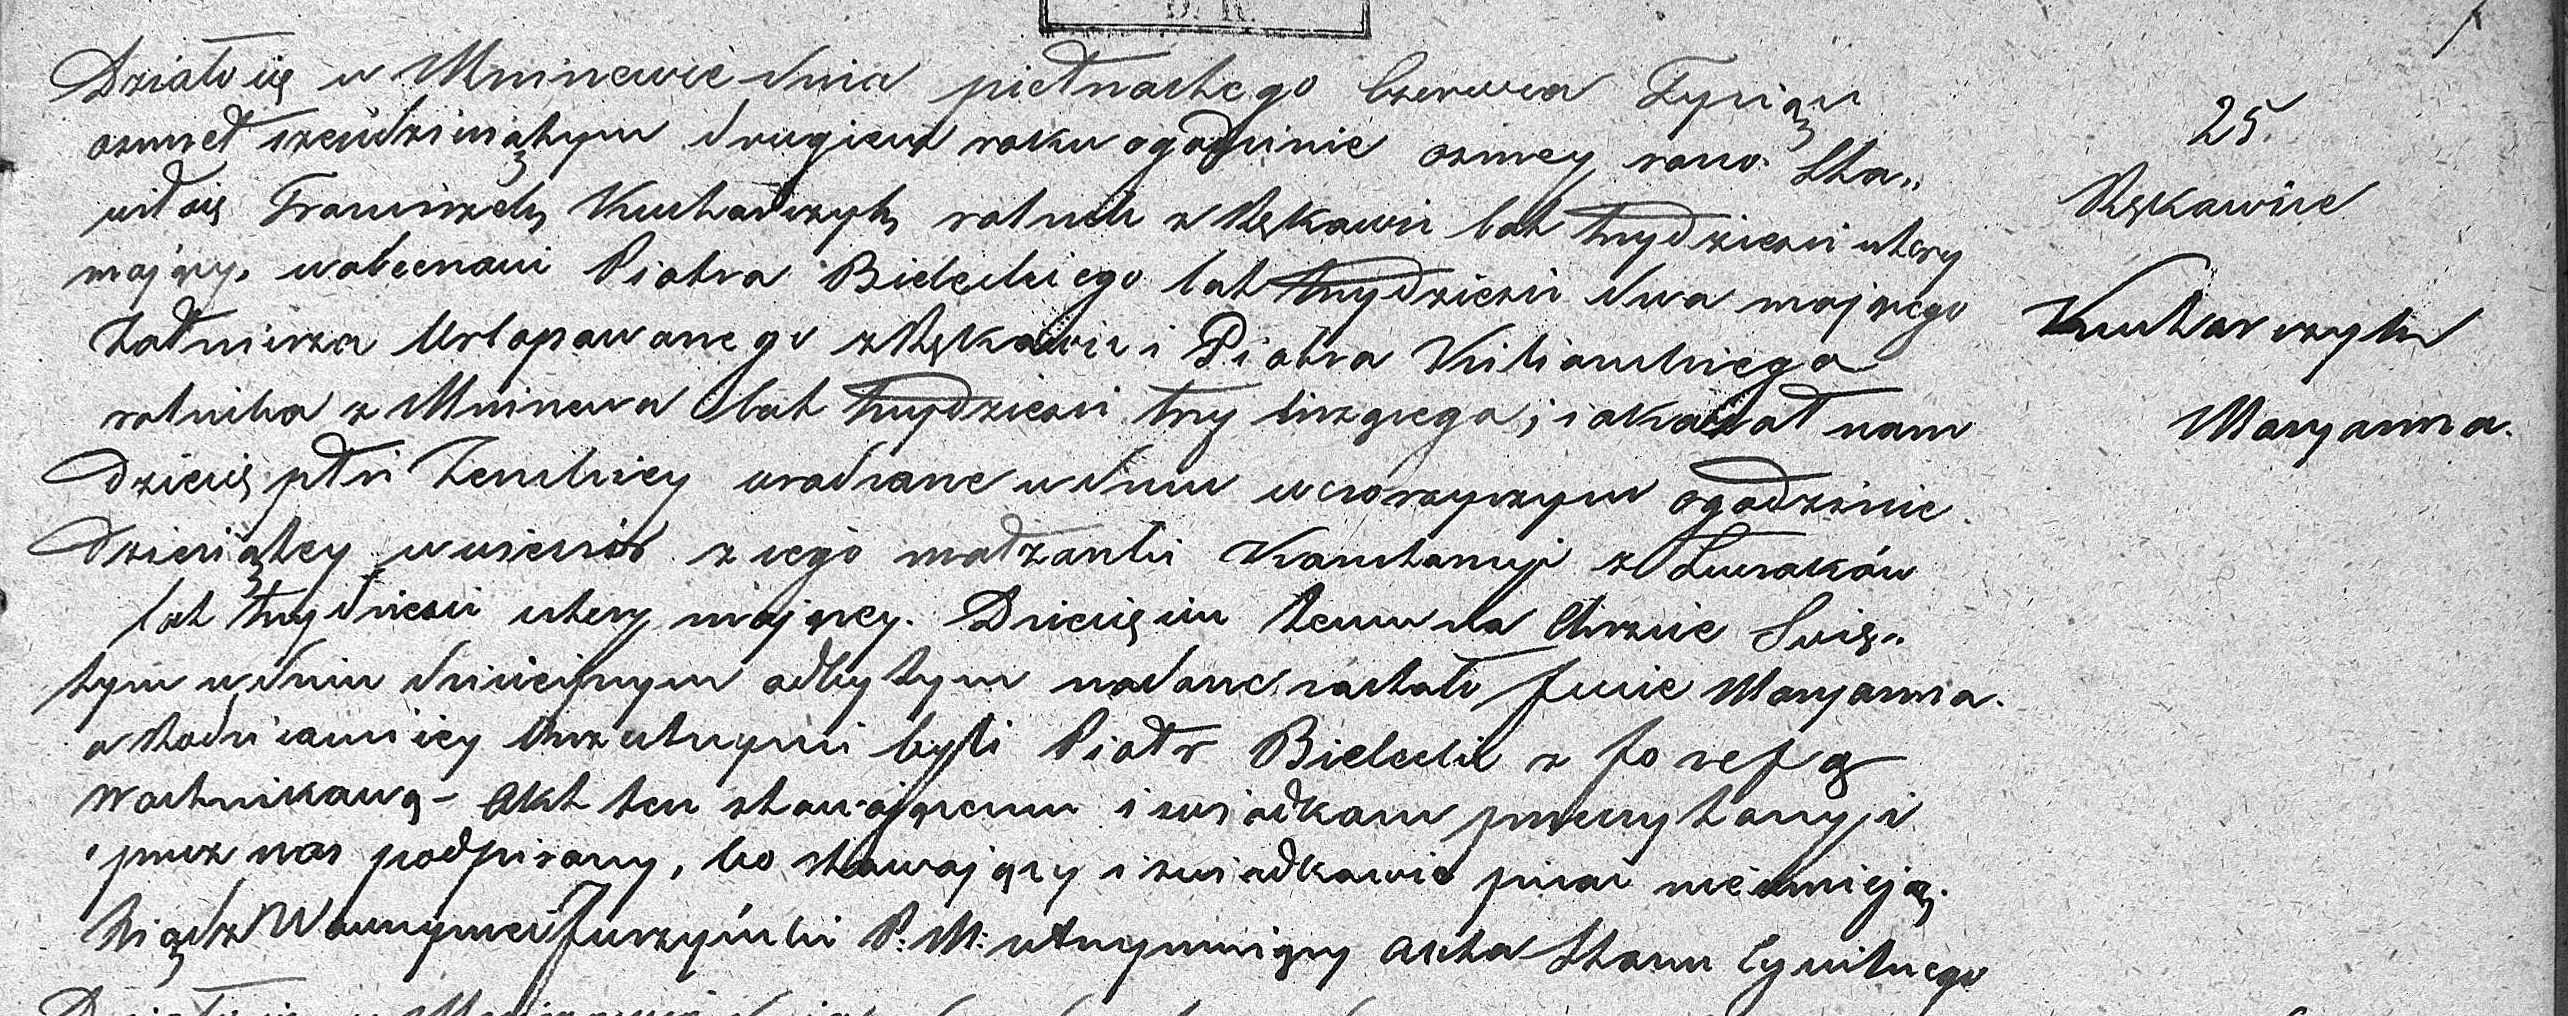 B. K.
Działo się w Mninewie dnia piętnastego Czerwca Tysiąc
osmset sześdziesiątym drugiem roku ogodzinie osmey rano. Sta„
wił się Franciszek Kucharczyk rolnik z Rękawic lat trzydzieści cztery
mający, wobecnosci Piotra Bieleckiego lat trzydzieści dwa mającego
żołnierza Urlopowanego z Rękawic i Piotra
rolnika z Mninewa lat trzydzieści trzy liczącego; i okazał nam
Dziecię płci żeńskiey urodzone w dniu wczorayszym ogodzinie
Dziesiątey wwieczór z iego małżonki Konstancyi z
lat trzydzieści cztery maiącey. Dziecięciu temu na Chrzcie Świę„
tym w dniu dzisieiszym odbytym nadane zostało Jmie Maryanna.
a Rodzicami iey Chrzestnymi byli Piotr Bielecki z Jozefą
Wochnikową – Akt ten stawaiącemu i swiadkom przeczytany i
przez nas podpisany, bo stawaiący i swiadkowie pisac nie umieją.
Xiądz Wawrzyniec Jurzyński P: M: utrzymuiący Akta Stanu Cywilnego
25.
Rękawice
Kucharczyk
Maryanna.